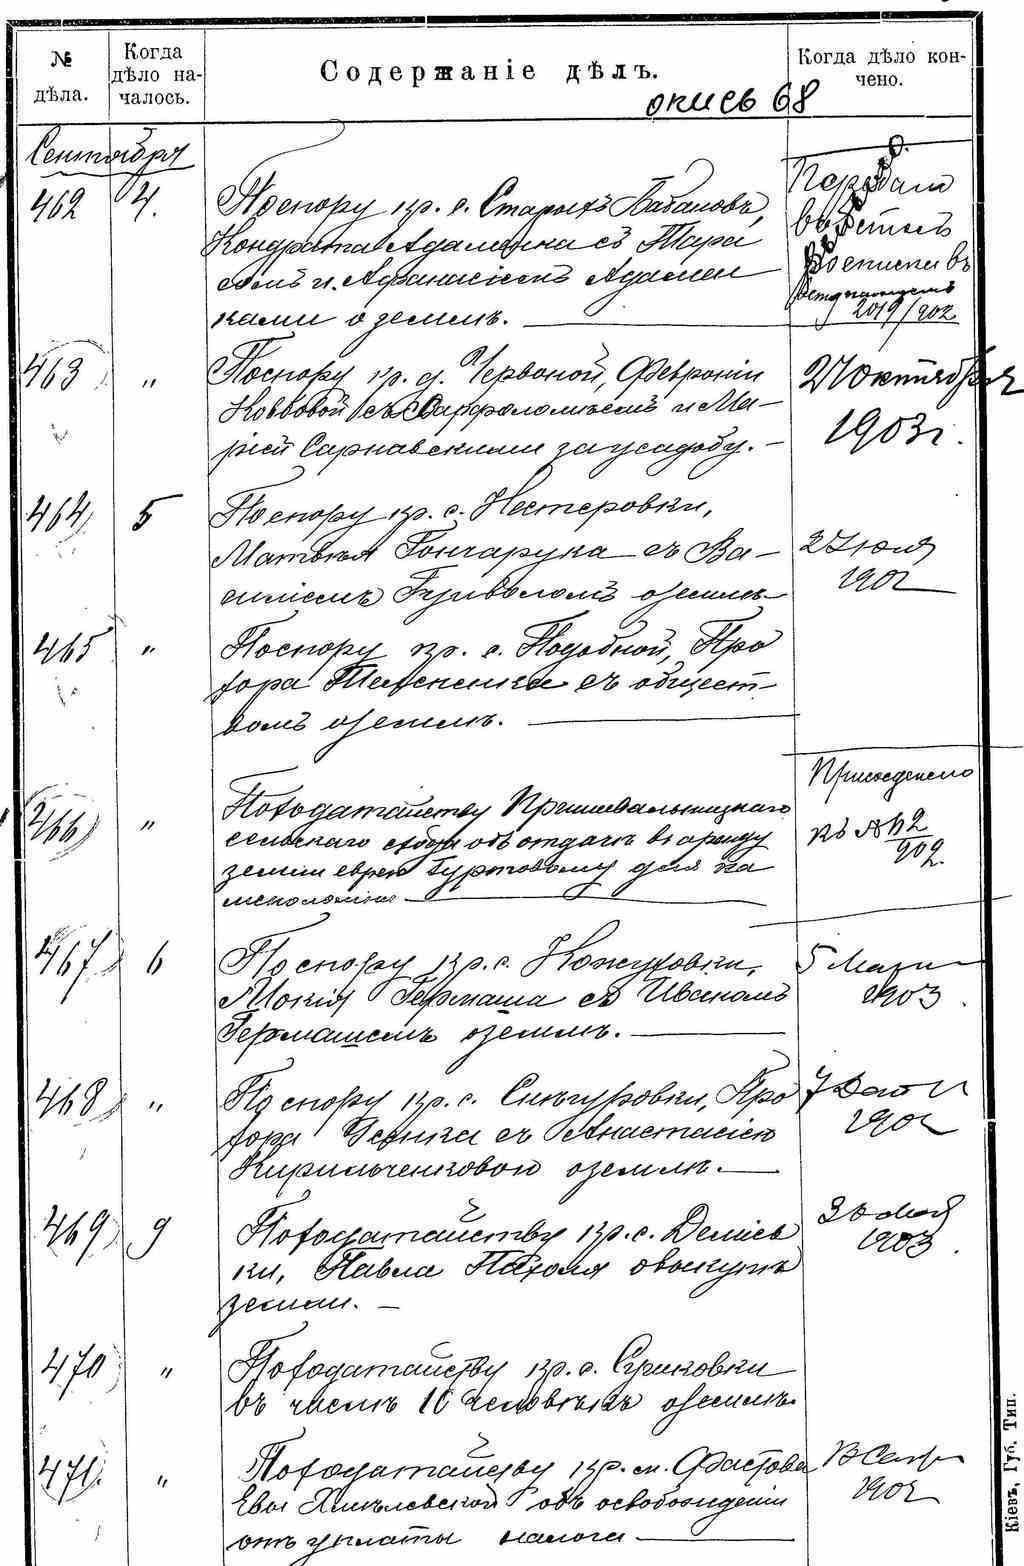 № дѣла.
Когда дѣло началось.
Содержаніе дѣлъ.
Когда дѣло кончено.
опись 68
Сентября
462 4. По спору кр. с. Старыхъ Бабановъ,
Кондрата Адаменка съ Тара
сомъ и Афанасіемъ Адамен
ками о землѣ.
Передано
выбыло.
росписки въ
2019/902
463 " По спору кр. д. Червоной, Февроніи
Ковбовой съ Варфоломѣемъ и Ма-
ріей Сарнавскими за усадьбу. -
27 Октября
1903 г.
464 5 По спору кр. с. Нестеровки,
Матвѣя Гончарука съ Ва-
силіемъ Приволомъ о землѣ
2 Іюля
1902
465 " По спору кр. с. Подобной, Про
хора с общест-
вомъ о землѣ.
466 " По ходатайству
сельскаго схода объ отдачѣ въ аренду
земли еврею Буртовому для ка
меноломни
Присоединено
къ № 112/902.
467 6 По спору кр. с. Кожуховки,
Мокія Гермаша съ Иваномъ
Гермашемъ о землѣ.
5 Марта
1903.
468 " По спору кр. с. Снѣгуровки, Про
хора съ Анастасіею
Кирильченковою о землѣ.
7
1902
469 9 По ходатайству кр. с. Деміев
ки, Павла о выкупѣ
земли. -
30 Мая
1903.
470 " По ходатайству кр. с.
въ числѣ 10 человѣкъ о землѣ.
471. " По ходатайству кр. м. Фастова
Евы Хмѣлевской объ освобожденіи
отъ уплаты налога
1902
Кіевъ, Губ. Тип.